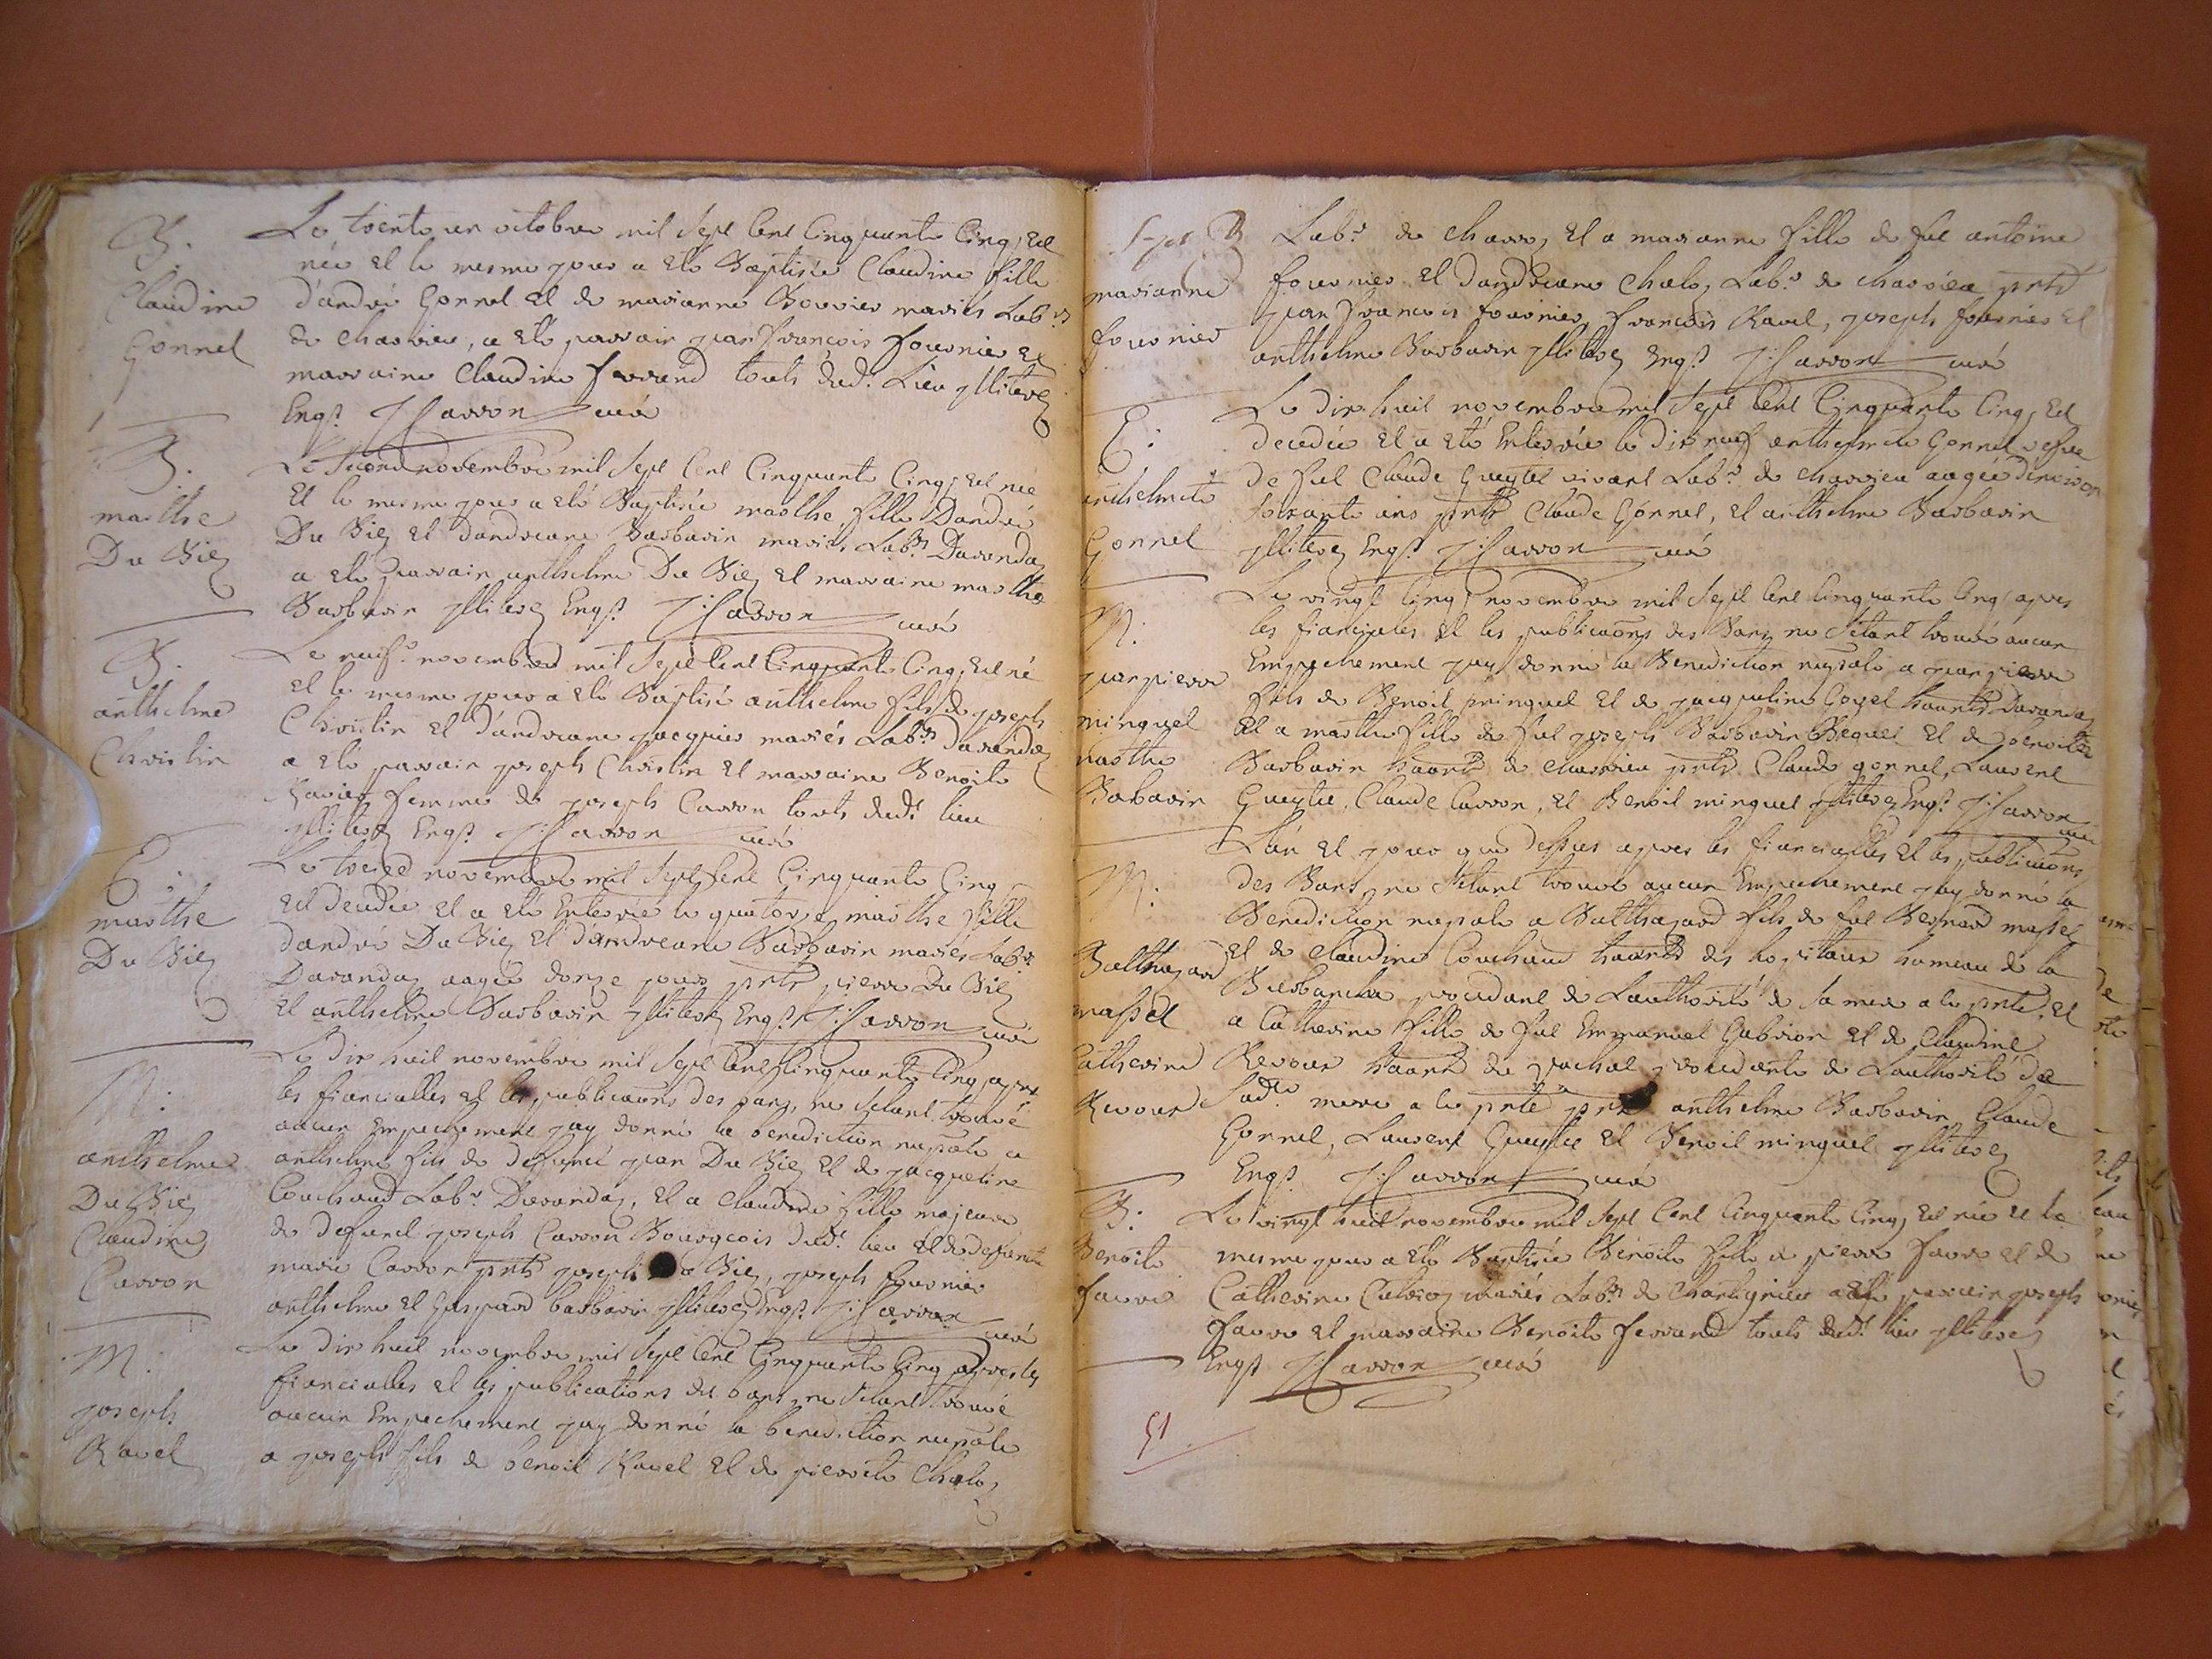 B.
Claudine
Gonnel
Le trente un octobre mil Sept Cent Cinquante Cinq, Est
née et le mesme jour a Eté Baptisée Claudine fille
d'andré Gonnel et de marianne Bouvier mariés Lab.rs
de Charvieu, a Eté parrain jean françois fournier et
marraine Claudine ferrand touts dud. Lieu jlliterez
Enqs. J: Carron curé
B.
marthe
Du Biez
Le Second novembre mil Sept Cent Cinquante Cinq, Est née
Et le mesme jour a Eté Baptisée marthe fille Dandré
Du Biez et dandreane Barbarin mariés Lab.rs Darandaz
a Eté parrain anthelme Du Biez et marraine marthe
Barbarin jlliterez Enqs. J: Carron curé
B.
anthelme
Christin
Le neuf.e novembre mil Sept Cent Cinquante Cinq, Est né
et le mesme jour a Eté Baptisé anthelme fils de joseph
Christin et d'andreane jacquier mariés Lab.rs darandaz
a Eté parrain joseph Christin et marraine Benoite
Ravier femme de joseph Carron touts dud. lieu
jlliterez Enqs. J: Carron curé
E.
marthe
Du Biez
Le treize novembre mil Sept Cent Cinquante Cinq
Est decedée et a Eté Enterrée le quatorze marthe fille
dandré Du Biez et d'andreane Barbarin mariés Lab.rs
Darandaz aagée donze jours pnts pierre Du Biez
et anthelme Barbarin jlliterez Enqs. J: Carron curé
M:
anthelme
Du Biez
Claudine
Carron
Le dix huit novembre mil Sept Cent Cinquante Cinq, apres
les fiancialles et les publicaõns des bans, ne s'etant trouvé
aucun Empechement jay donné la benediction nupsale a
anthelme fils de defunct jean Du Biez et de jacqueline
Couchaud Lab.r Darandaz, et a Claudine fille majeure
de defunct joseph Carron Bourgeois dud. lieu et de defuncte
marie Carron pnts joseph Biez, joseph fournier
anthelme et Gaspard barbarin jlliterez Enqs. J: Carron curé
M.
joseph
Ravel
Le dix huit novembre mil Sept Cent Cinquante Cinq apres les
fiancialles et les publications des bans, ne s'etant trouvé
aucun Empechement jay donné la benediction nupsale
a joseph fils de benoit Ravel et de pierrete Chaley
marianne
fournier
Lab.r de Charvey et a marianne fille de feu antoine
fournier et dandreane Chaley Lab.r de charvieu pnts
jean françois fournier, françois Ravel, joseph fournier et
anthelme Barbarin jlliterez Enqs. J: Carron curé
E:
anthelmete
Gonnel
Le dix huit novembre mil Sept Cent Cinquante Cinq, Est
decedée et a eté Enterrée le dix neuf anthelmete Gonnel vefve
de feu Claude Gueytet vivant Lab.r de charvieu aagée denviron
soixante ans pnts Claude Gonnel, et anthelme Barbarin
jlliterez Enqs. J: Carron curé
M:
jean pierre
minguet
marthe
Babarin
Le vingt Cinq novembre mil Sept Cent Cinquante Cinq, apres
les fiançailles et les publicaõns des Bans, ne s'etant trouvé aucun
Empechement jay donné la Benediction nupsale a jean pierre
fils de Benoit minguet et de jacqueline Goyet haants Darandaz
et a marthe fille de feu joseph Barbarin Beguet et de Benoite
Barbarin haants de charvieu pnts Claude gonnel, Laurent
Gueytet, Claude Carron, et Benoit minguet jlliterez Enqs. J: Carron
curé
M.
Balthazard
massel
Catherine
Revour
L'an et jour que dessus apres les fiancialles et les publicaõns
des Bans, ne s'etant trouvé aucun Empechement jay donné la
Benediction nupsale a Balthazard fils de feu Bernard massel
et de Claudine Couchaud haants des hopitaux hameau de la
Burbanche procedant de Lauthorité de sa mere a ce pnte, et
a Catherine fille de feu Emmanuel Gabrion et de Claudine
Revour haante de procedente de Lauthorité de
Sadte mere a ce pnte pnts anthelme Barbarin, Claude
Gonnel, Laurent Gueytet et Benoit minguet jlliterez
Enqs. J: Carron curé
B:
Benoite
favre
Le vingt huit novembre mil Sept Cent Cinquante Cinq, Est née et le
mesme jour a Eté Baptisée Benoite fille de pierre favre et de
Catherine mariés Lab.rs de Chantignieu a Eté parrain joseph
favre et marraine Benoite ferrand touts dud. lieu jlliterez
Enqs. J: Carron curé
51